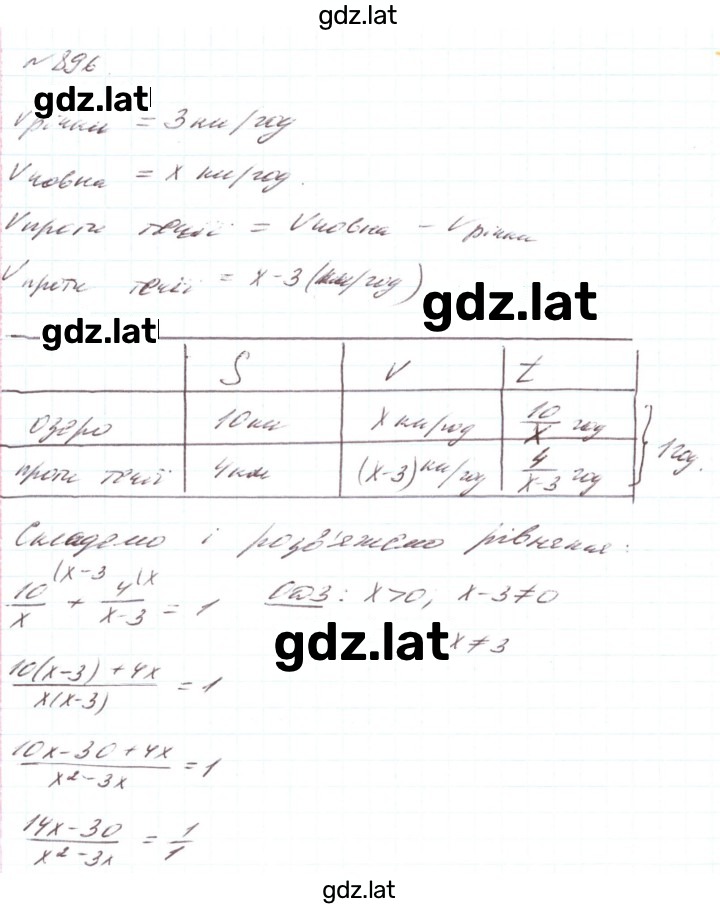 gdz.lat
№896.
gdz.lat
Vрічки = 3 км/год
Vчовна = x км/год.
Vпроти течії = Vчовна - Vрічки
Vпроти течії = x-3 (км/год)
gdz.lat
gdz.lat
S V t
озеро 10км x км/год 10/x год
проти течії 4км (x-3) км/год 4/(x-3) год
1 год.
Складемо і розв'яжемо рівняння:
10/x (x-3 + 4/(x-3) (x = 1 ОДЗ: x>0; x-3≠0
gdz.lat x≠3
(10(x-3)+4x)/(x(x-3)) = 1
(10x-30+4x)/(x²-3x) = 1
(14x-30)/(x²-3x) = 1/1
gdz.lat